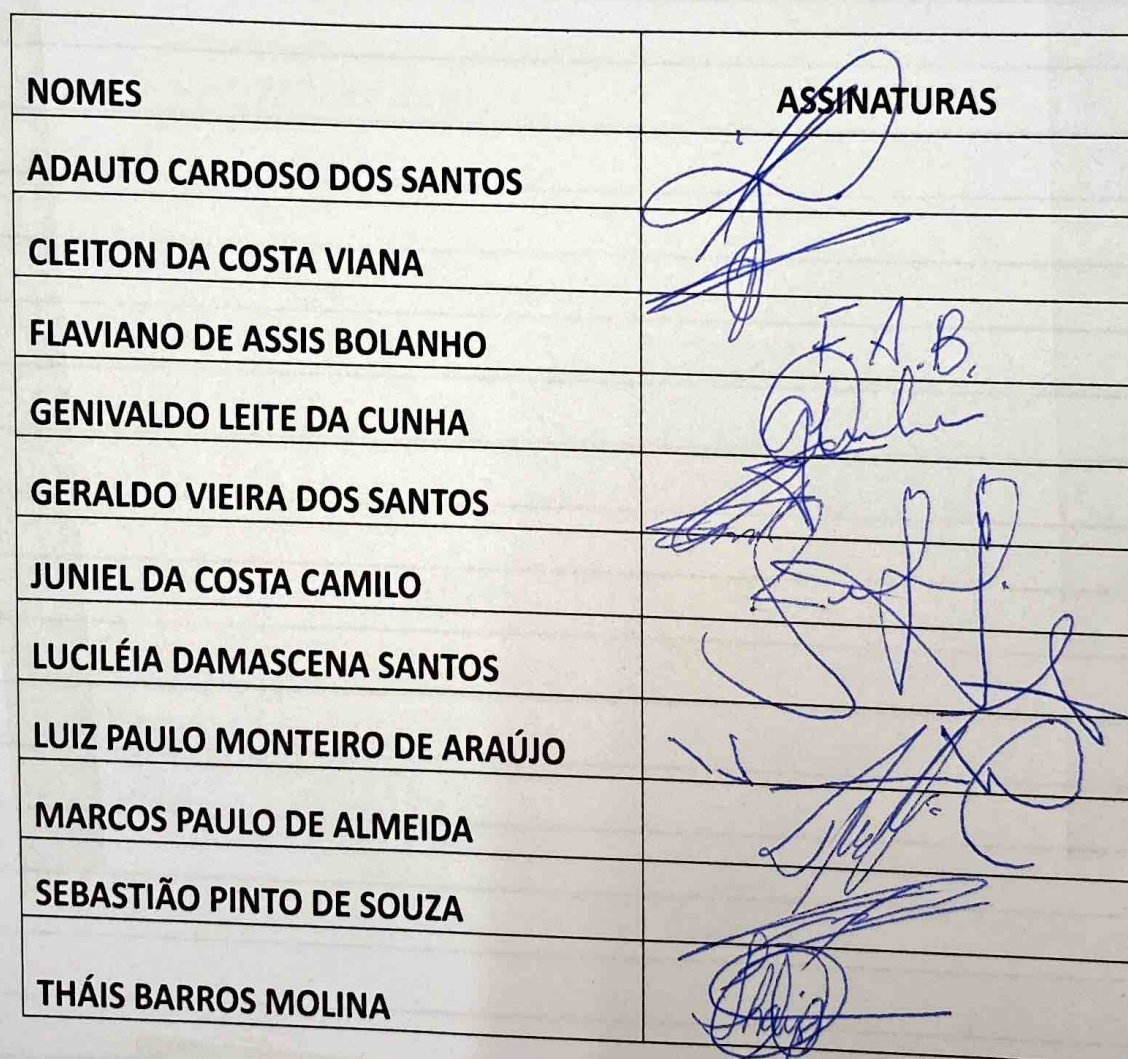 NOMES ASSINATURAS
ADAUTO CARDOSO DOS SANTOS
CLEITON DA COSTA VIANA
FLAVIANO DE ASSIS BOLANHO F.A.B.
GENIVALDO LEITE DA CUNHA
GERALDO VIEIRA DOS SANTOS
JUNIEL DA COSTA CAMILO
LUCILÉIA DAMASCENA SANTOS
LUIZ PAULO MONTEIRO DE ARAÚJO
MARCOS PAULO DE ALMEIDA
SEBASTIÃO PINTO DE SOUZA
THÁIS BARROS MOLINA Thais